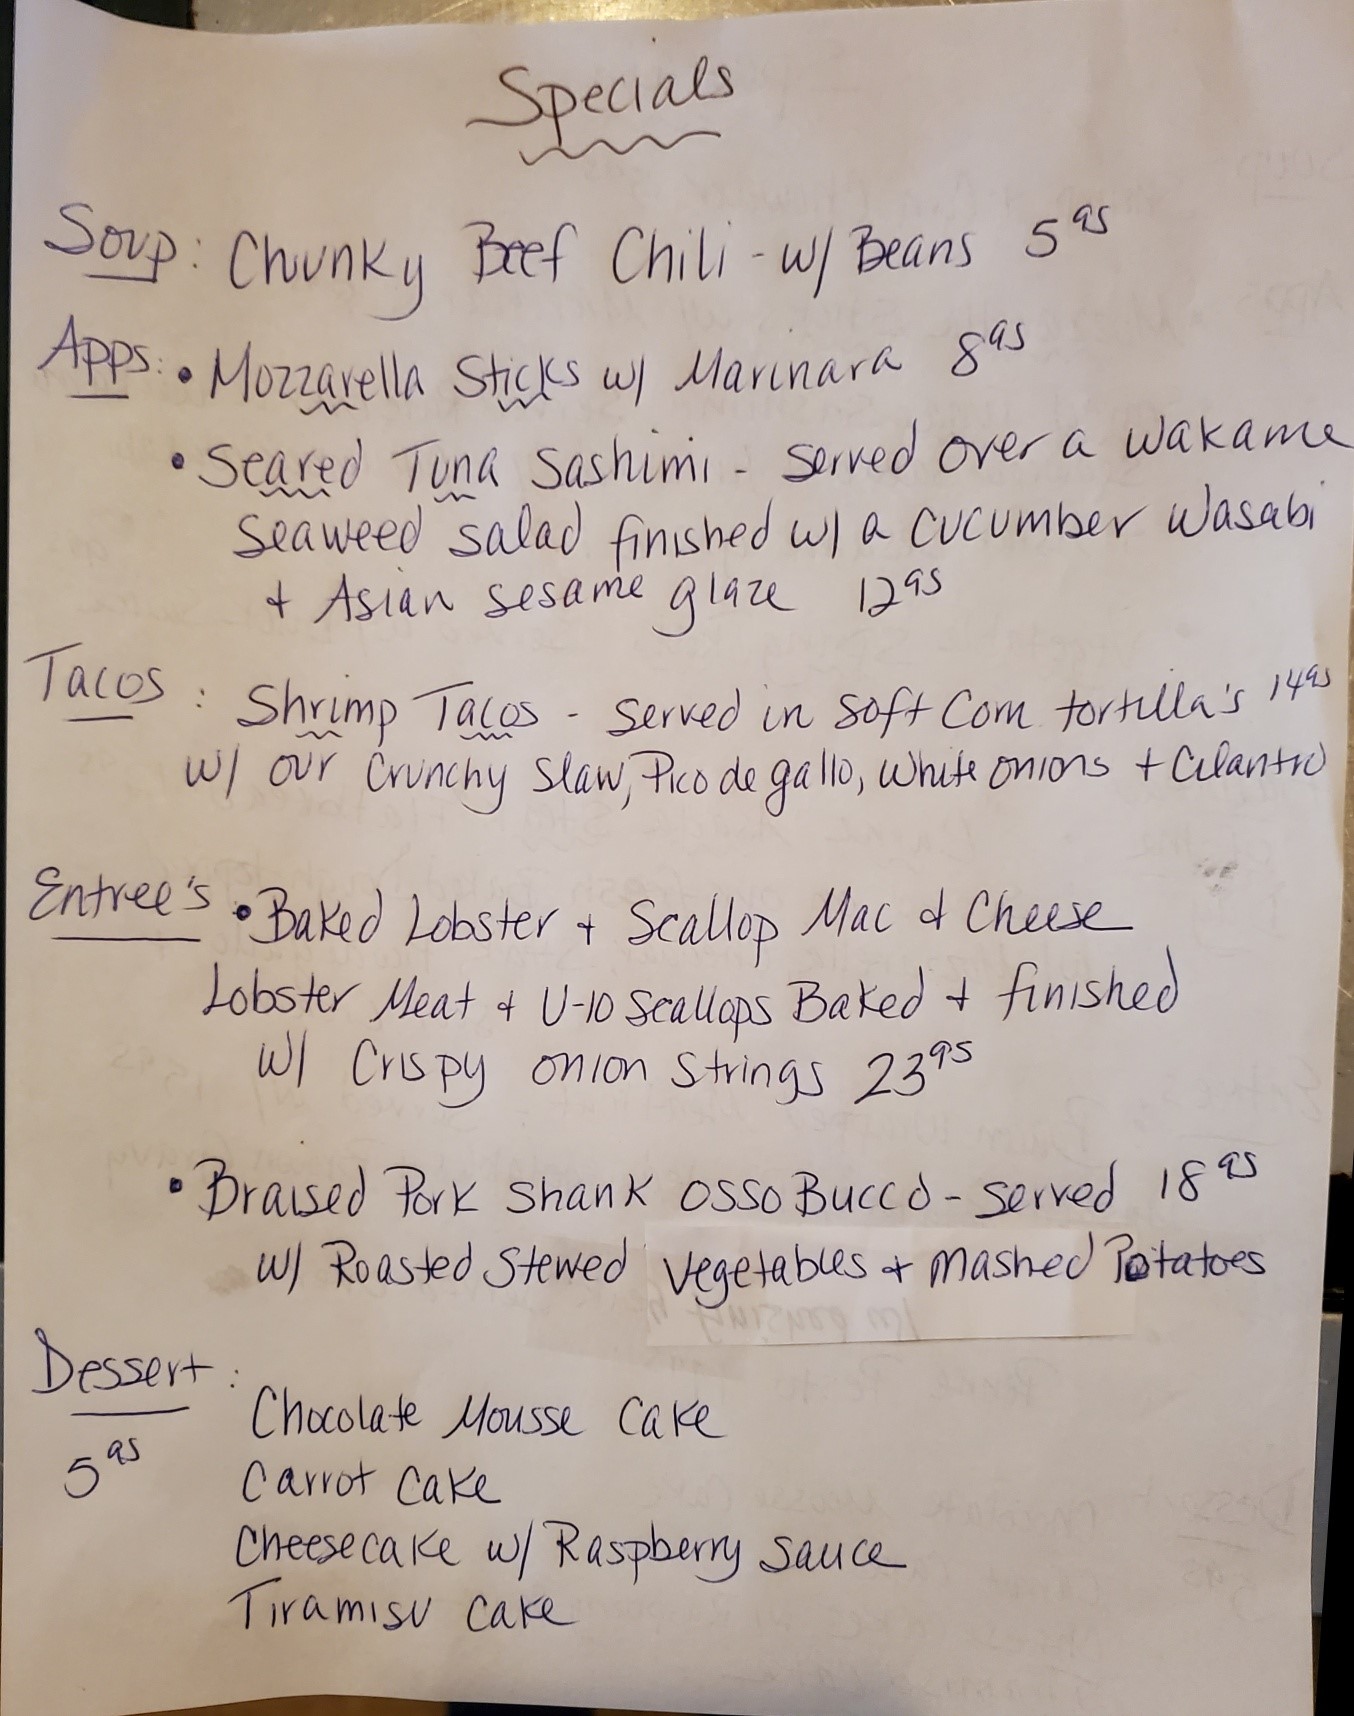 Specials
Soup: Chunky Beef Chili - w/ Beans 5 95
Apps: • Mozzarella Sticks w/ Marinara 8 95
• Seared Tuna Sashimi - Served over a Wakame
Seaweed salad finished w/ a Cucumber Wasabi
+ Asian sesame glaze 12 95
Tacos: Shrimp Tacos - Served in Soft Corn tortilla's 14 95
w/ our Crunchy Slaw, Pico de gallo, White onions + Cilantro
Entree's • Baked Lobster + Scallop Mac + Cheese
Lobster Meat + U-10 Scallops Baked + finished
w/ Crispy onion Strings 23 95
• Braised Pork Shank Osso Bucco - Served 18 95
w/ Roasted Stewed Vegetables + Mashed Potatoes
Dessert: Chocolate Mousse Cake
5 95 Carrot Cake
Cheesecake w/ Raspberry Sauce
Tiramisu Cake